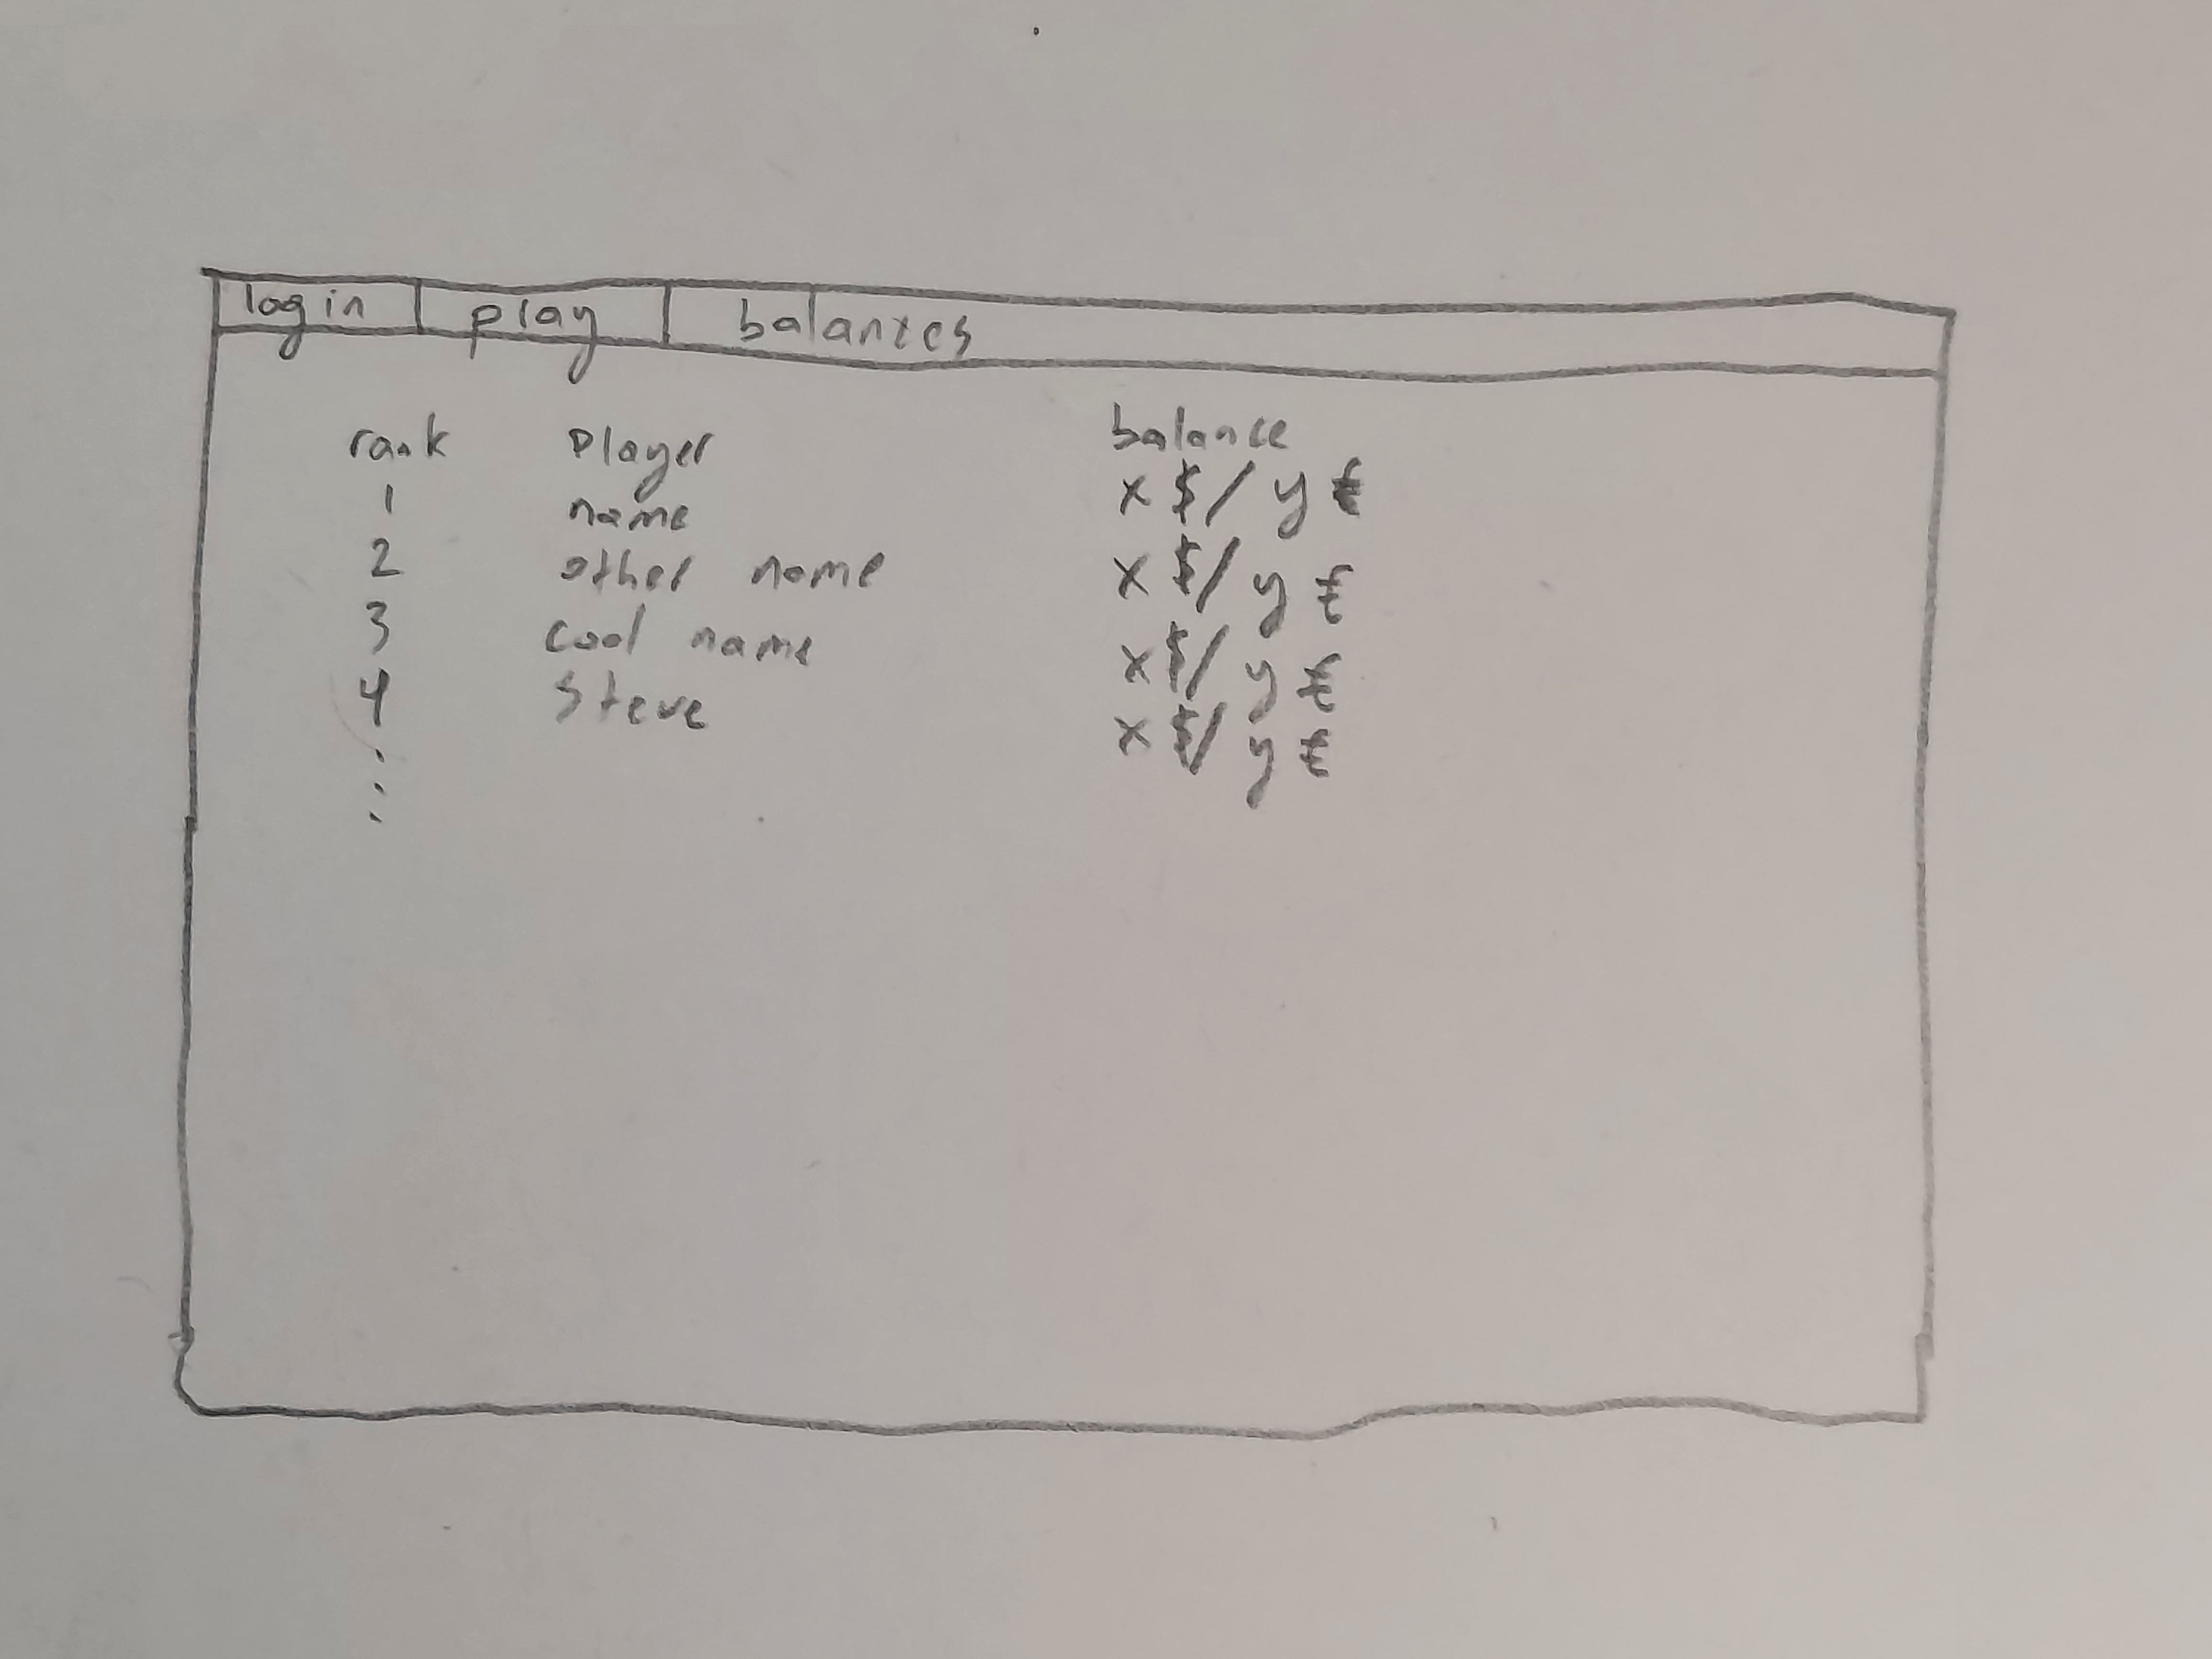 login play balances
rank player balance
1 name x $/ y €
2 other name x $/ y €
3 cool name x $/ y €
4 Steve x $/ y €
:
: